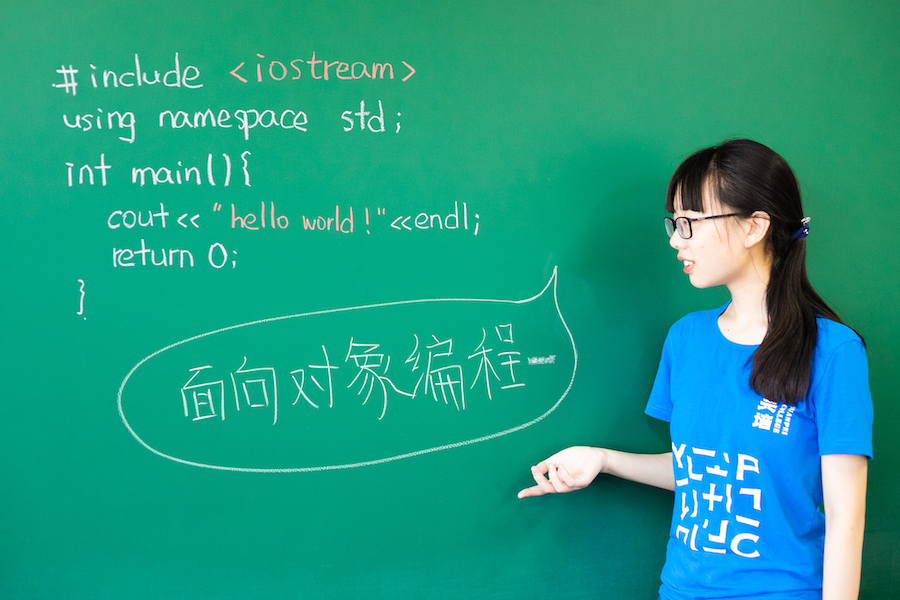 #include <iostream>
using namespace std;
int main(){
cout<< "hello world!"<<endl;
return 0;
}
面向对象编程
元培
YUANPEI
COLLEGE